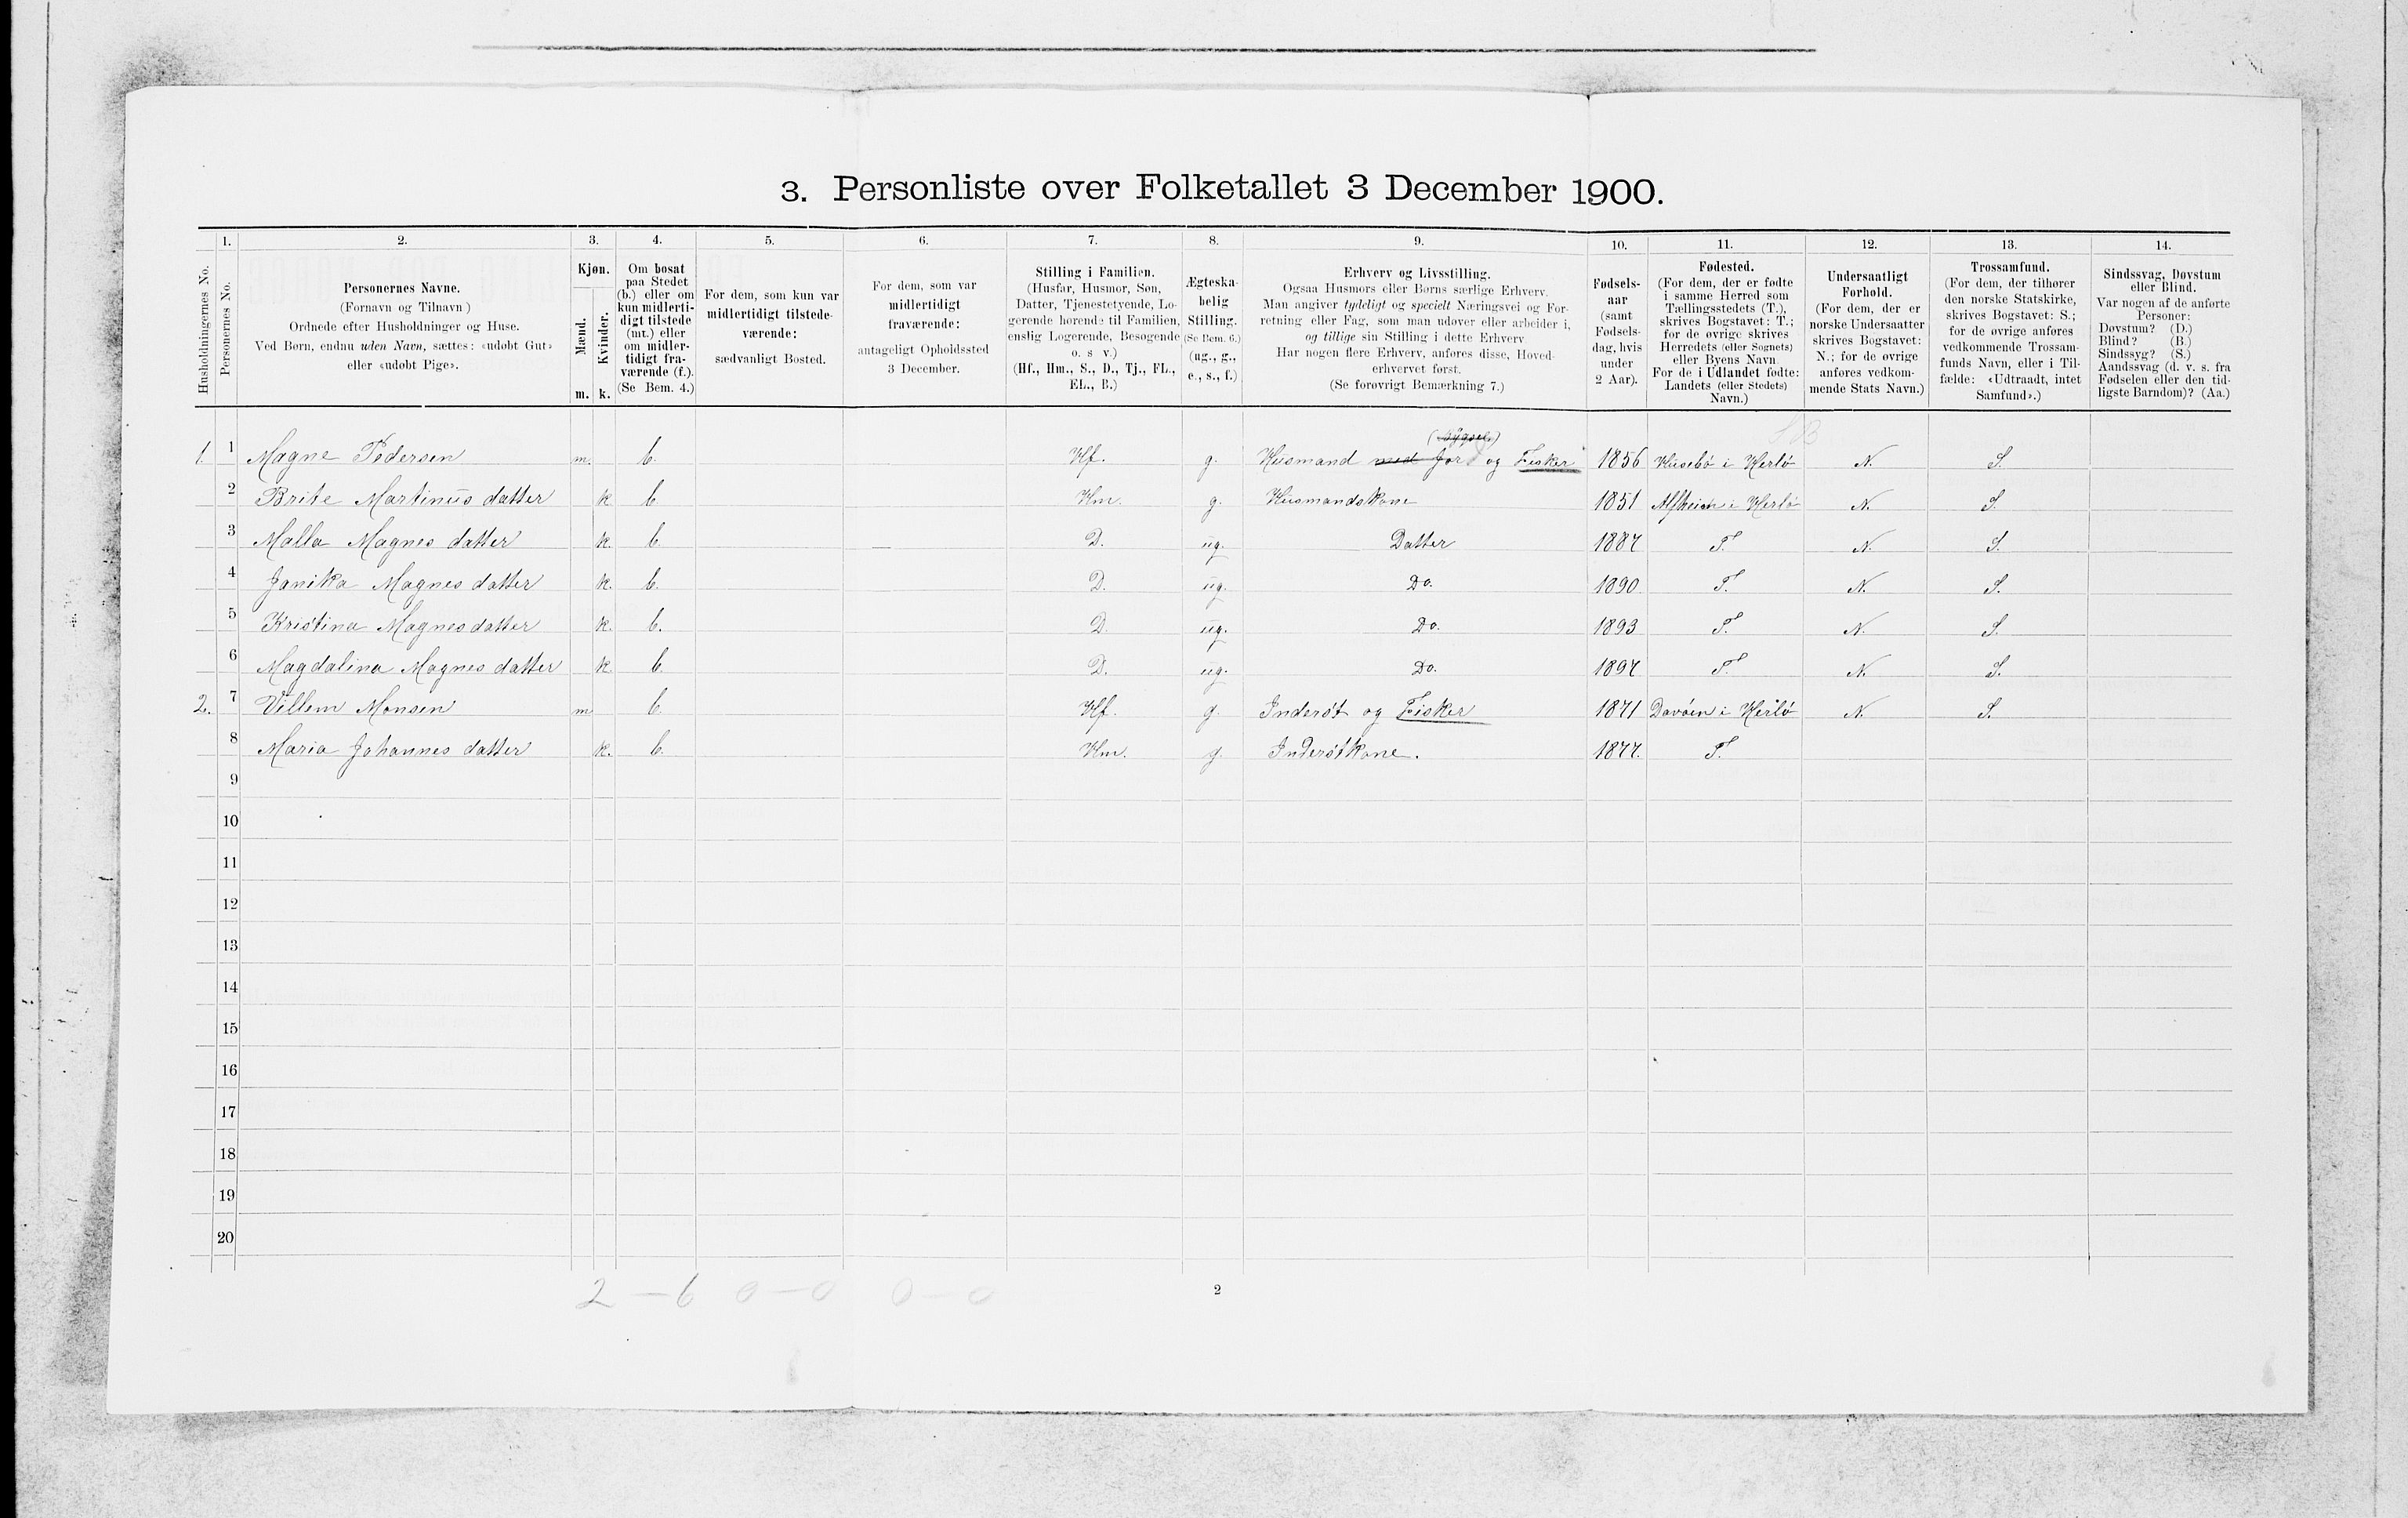 3. Personliste over Folketallet 3 December 1900.
1. 2. 3. 4. 5. 6. 7. 8. 9. 10. 11. 12. 13. 14.
Husholdningernes No.
Personernes No.
Personernes Navne.
(Fornavn og Tilnavn)
Ordnede efter Husholdninger og Huse.
Ved Børn, endnu uden Navn, sættes: «udøbt Gut»
eller «udøbt Pige».
Kjøn.
Mænd.
Kvinder.
m. k.
Om bosat
paa Stedet
(b.) eller om
kun midlerti-
digt tilstede
(mt.) eller
om midler-
tidigt fra-
værende (f.).
(Se Bem. 4.)
For dem, som kun var
midlertidigt tilstede-
værende:
sædvanligt Bosted.
For dem, som var
midlertidigt
fraværende:
antageligt Opholdssted
3 December.
Stilling i Familien.
(Husfar, Husmor, Søn,
Datter, Tjenestetyende, Lo-
gerende hørende til Familien,
enslig Logerende, Besøgende
o. s v.)
(Hf., Hm., S., D., Tj., FL.,
EL., B.)
Ægteska-
belig
Stilling.
(Se Bem. 6.)
(ug., g.,
e., s., f.)
Erhverv og Livsstilling.
Ogsaa Husmors eller Børns særlige Erhverv.
Man angiver tydeligt og specielt Næringsvei og For-
retning eller Fag, som man udøver eller arbeider i,
og tillige sin Stilling i dette Erhverv
Har nogen flere Erhverv, anføres disse, Hoved-
erhvervet først.
(Se forøvrigt Bemærkning 7.)
Fødsels-
aar
(samt
Fødsels-
dag, hvis
under
2 Aar).
Fødested.
(For dem, der er fødte
i samme Herred som
Tællingsstedets (T.),
skrives Bogstavet: T.;
for de øvrige skrives
Herredets (eller Sognets)
eller Byens Navn
For de i Udlandet fødte:
Landets (eller Stedets)
Navn.)
Undersaatligt
Forhold.
(For dem, der er
norske Undersaatter
skrives Bogstavet:
N.; for de øvrige
anføres vedkom-
mende Stats Navn.)
Trossamfund.
(For dem, der tilhører
den norske Statskirke,
skrives Bogstavet: S.;
for de øvrige anføres
vedkommende Trossam-
funds Navn, eller i Til-
fælde: «Udtraadt, intet
Samfund».)
Sindssvag, Døvstum
eller Blind.
Var nogen af de anførte
Personer:
Døvstum? (D.)
Blind? (B.)
Sindssyg? (S.)
Aandssvag (d. v. s. fra
Fødselen eller den tid-
ligste Barndom)? (Aa.)
1. 1 Magne Pedersen m. b. Hf. g. Husmand med Jord og Fisker 1856 Husebö i Herlö N. S.
2 Brite Martinus datter k b. Hm. g. Husmandskone 1851 i Herlö N. S.
3 Malla Magnes datter k. b. D. ug. Datter 1887 T. N. S.
4 Janika Magnes datter k. b. D. ug. Do. 1890 T. N. S.
5 Kristina Magnes datter k. b. D. ug. Do. 1893 T. N. S.
6 Magdalina Magnes datter k b. D. ug. Do. 1897 T. N. S.
2. 7 Villem Monsen m b. Hf. g. Inderøt og Fisker 1871 i Herlö N. S.
8 Maria Johannes datter k. b. Hm. g. Inderøtkone. 1877. T.
9
10
11
12
13
14
15
16
17
18
19
20
2 – 6 0 – 0 0 – 0
2